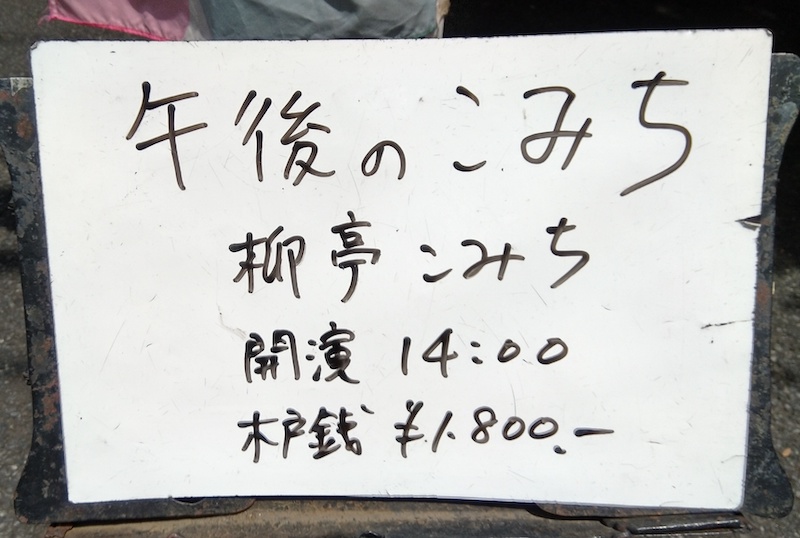 午後のこみち
柳亭こみち
開演 14:00
木戸銭 ¥1.800.ー